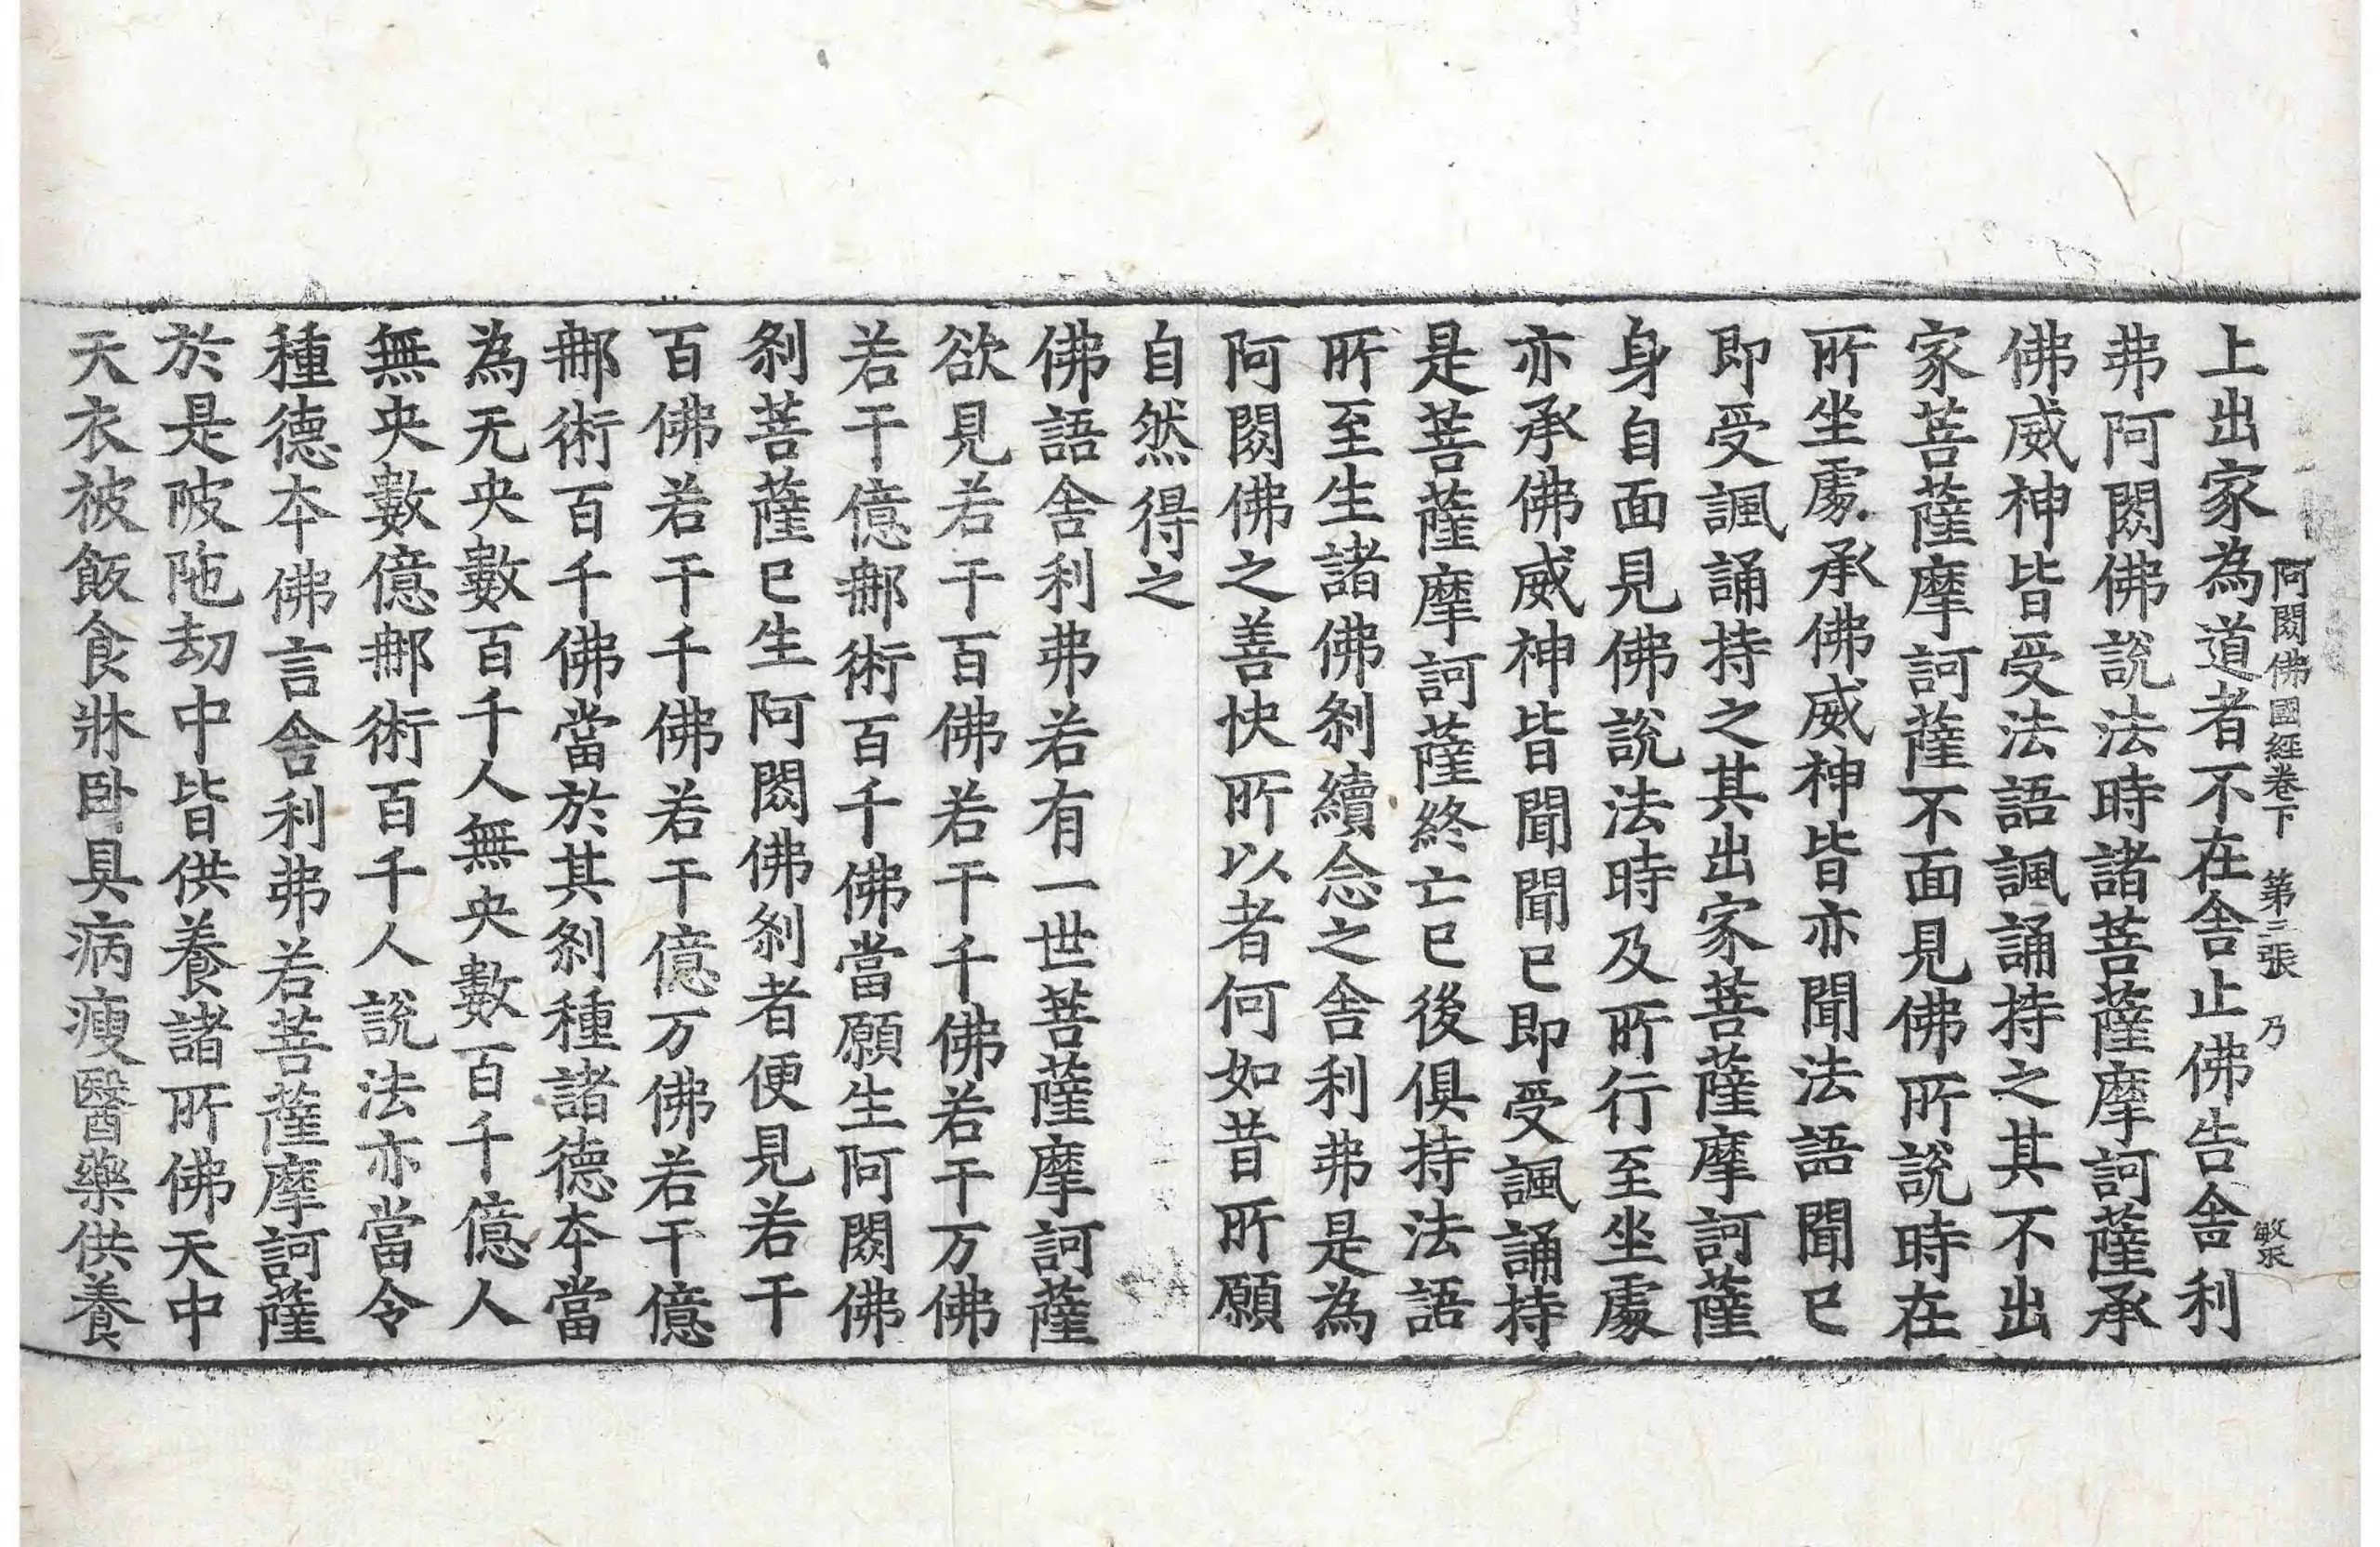 阿閦佛國經卷下 第三張 乃
上出家為道者不在舍止佛告舍利
弗阿閦佛說法時諸菩薩摩訶薩承
佛威神皆受法語諷誦持之其不出
家菩薩摩訶薩不面見佛所說時在
所坐處承佛威神皆亦聞法語聞已
即受諷誦持之其出家菩薩摩訶薩
身自面見佛說法時及所行至坐處
亦承佛威神皆聞聞已即受諷誦持
是菩薩摩訶薩終亡已後俱持法語
所至生諸佛剎續念之舍利弗是為
阿閦佛之善快所以者何如昔所願
自然得之
佛語舍利弗若有一世菩薩摩訶薩
欲見若干百佛若干千佛若干万佛
若干億那術百千佛當願生阿閦佛
剎菩薩已生阿閦佛剎者便見若干
百佛若干千佛若干億万佛若干億
那術百千佛當於其剎種諸德夲當
為无央數百千人無央數百千億人
無央數億那術百千人說法亦當令
種德夲佛言舍利弗若菩薩摩訶薩
於是陂陁劫中皆供養諸所佛天中
天衣被飯食牀臥具病瘦醫藥供養